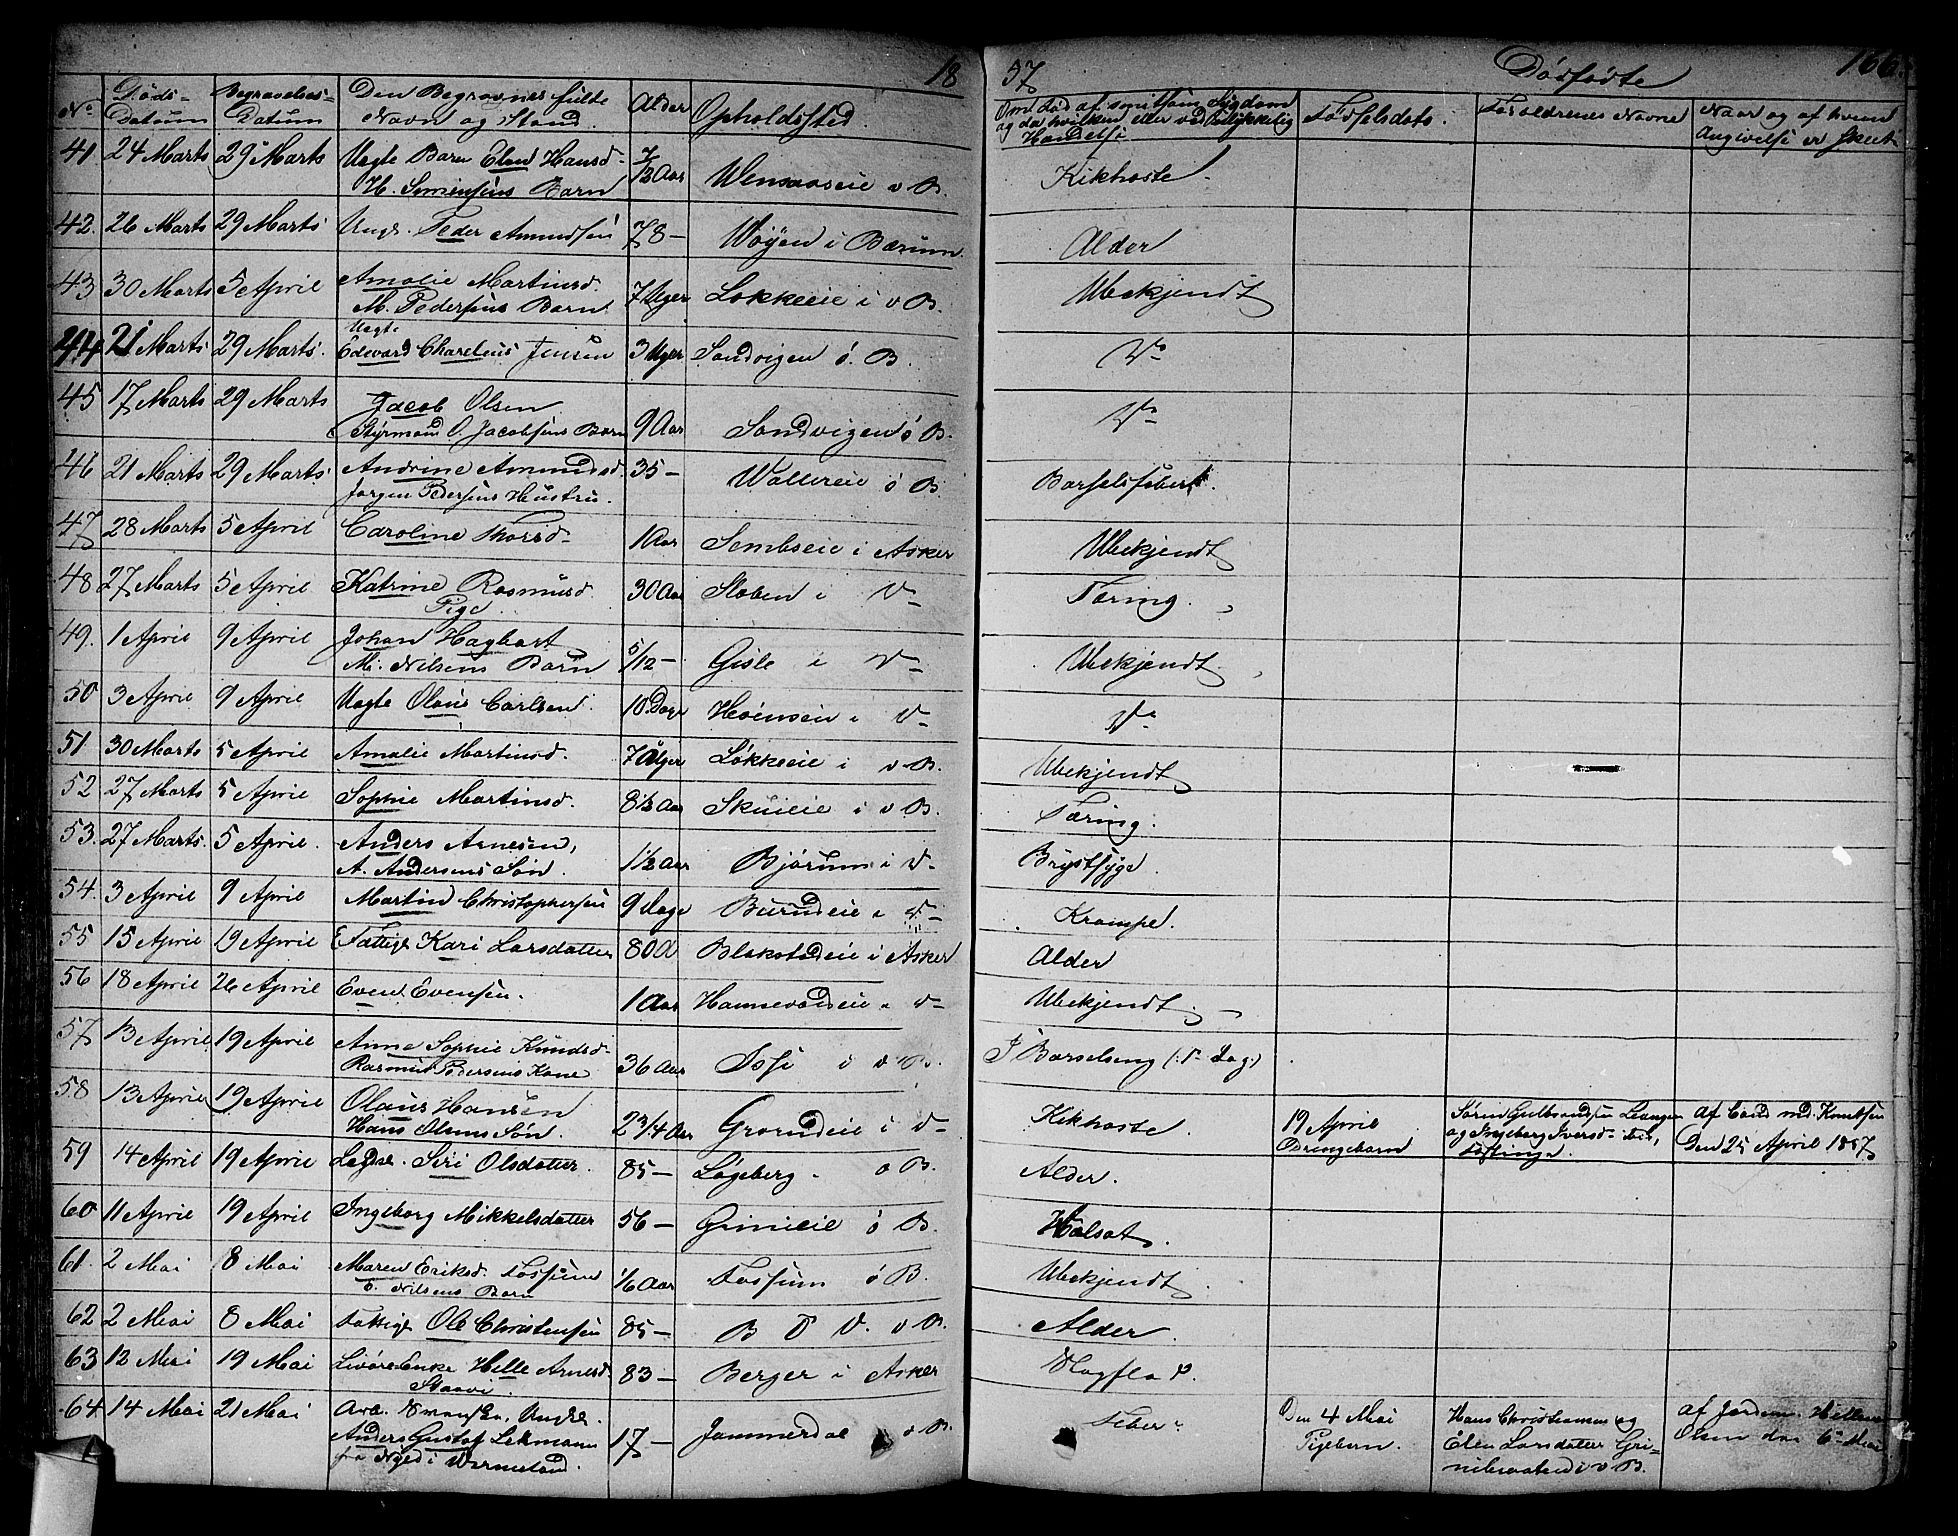 18 57 Dödfödte 166.
No. Döds-Datum Begravelses-Datum Den Begravnes fulde Navn og Stand Alder Opholdssted. Om död af smitsom Sygdom og da hvilken eller ved Ulykkelig Hændelse Födselsdato. Forældrenes Navne Naar og af hvem Angivelse er skeet
41 24 Marts 29 Marts Uægte Barn Elen Hansd.
H. Simensens Barn 1/2 Aar v B. Kikhoste.
42. 26 Marts 29 Marts Ungk. Peder Amundsen 78 - Wöyen i Bærum. Alder
43 30 Marts 5 April Amalie Martinsd.
M. Pedersens Barn 7 Uger Løkkeeie i v B. Ubekjendt
44 21 Marts 29 Marts. Uægte
Edevard Charelius Jensen 3 Uger Sandvigen ö. B. Do
45 17 Marts 29 Marts Jacob Olsen
Styrmand O. Jacobsens Barn 9 Aar Sandvigen ö B. Do
46 21 Marts 29 Marts Andrine Amundsd.
Jørgen Pedersens Hustru. 35 - Wallereie ö B. Barselsfeber.
47 28 Marts 5 April Caroline Thorsd. 1 Aar Sembseie i Asker Ubekjendt
48 27 Marts 5 April Katrine Rasmusd.
Pige 30 Aar Staben i Do Tæring.
49. 1 April 9 April Johan Hagbart
M. Nilsens Barn 5/12 - Gisle i Do Ubekjendt.
50 3 April 9 April Uægte Olaus Carlsen. 10 Dage i Do Do
51 30 Marts 5 April Amalie Martinsd. 7 Uger Løkkeeie i v B. Ubekjendt
52 27 Marts 5 April Sophie Martinsd. 8 1/2 Aar Skuieie i v B. Tæring.
53. 27 Marts. 5 April. Anders Arnesen,
A. Andersens Søn. 1 1/2 Aar Bjørum i Do Brystsyge
54. 3 April 9 April Martin Christophersen 9 Dage Burudeie i Do Krampe.
55 15 April 19 April Fattige Kari Larsdatter 80 A Blakstadeie i Asker Alder
56 18 April 26 April Even Evensen. 1 Aar i Do Ubekjendt.
57 13 April 19 April Anne Sophie Knudsd.
Rasmus Pedersens Kone 36 Aar v B. I Barselseng
58 13 April 19 April Olaus Hansen
Hans Olsens Søn. 2 3/4 Aar i Do Kikhoste. 19 April
Drengebarn Søren Gulbrandsen
og Ingeborg Iversd. af Cand. md. Knutsen
Den 25 April 1857
59 14 April 19 April Siri Olsdatter. 85 - Løgeberg. ö B. Alder.
60 11 April 19 April Ingeborg Mikkelsdatter 56 - Grinieie ö B.
61. 2 Mai 8 Mai Maren Eriksd. Fossum
E. Nilsens Barn 1/6 Aar Fossum ö B. Ubekjendt.
62 2 Mai 8 Mai Fattige Ole Christensen 85 - v B. Alder.
63 12 Mai 19 Mai Enke Helle Arnesd.
83 - Berger i Asker
64 14 Mai 21 Mai Arb. Svenske, Ungk.
Anders Gustaf Lekmann
fra Nyed i Wermeland. 17 - Jammerdal v B. Feber. Den 4 Mai
Pigebarn. Hans Christiansen og
Elen Larsdatter
i v B. af
Olsen den 6te Mai